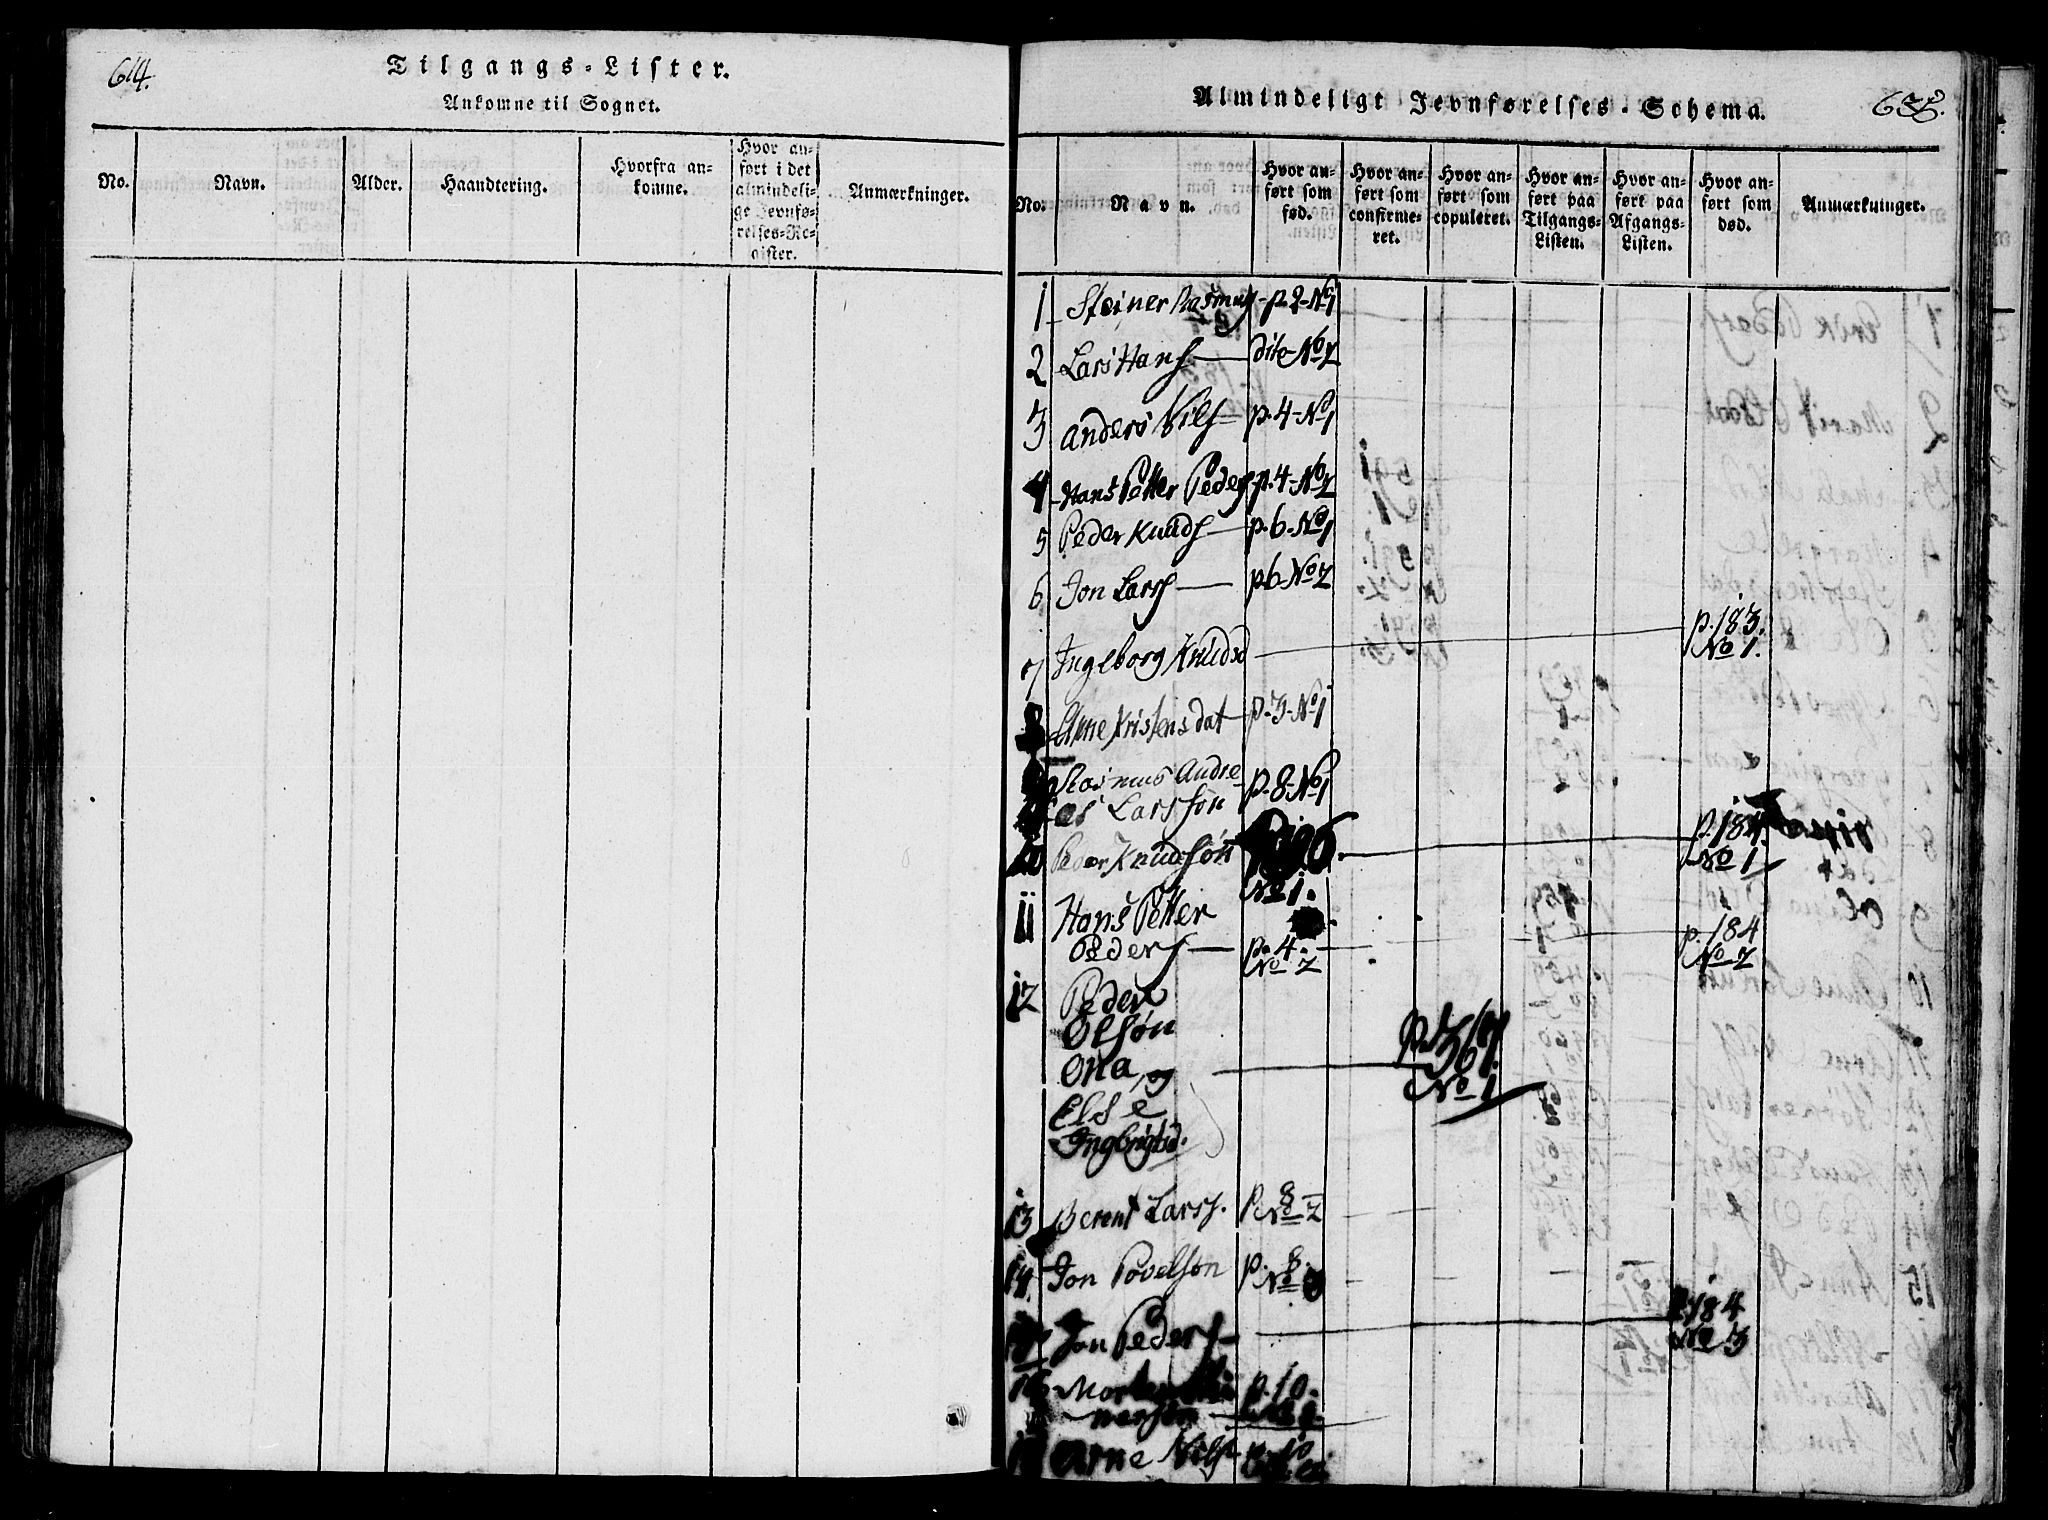 614.
Tilgangs-Lister.
Ankomne til Sognet.
No.
Navn.
Alder.
Haandtering.
Hvorfra an-
komne.
Hvor an-
ført i det
almindeli-
ge Jevnfø-
relses-Re-
gister.
Anmærkninger.
Almindeligt Jevnførelses-Schema.
No.
Navn.
Hvor an-
ført som
fød.
Hvor an-
ført som
confirme-
ret.
Hvor an-
ført som
copuleret.
Hvor an-
ført paa
Tilgangs-
Listen.
Hvor an-
ført paa
Afgangs-
Listen.
Hvor an-
ført som
død.
Anmærkninger.
1 Steiner p. 2-No 1
2 Lars Hans dito No 2
3 Anders Nils p. 4-No 1
4 Hans Petter Peders p. 4-No 2
5 Peder Knuds p. 6-No 1
6 Jon Lars p 6-No 2
7 Ingeborg Knudsd p. 183.
No 1.
8 Anne Kristensdat p. 3-No 1
Rasmus Andre-
as Larsson p. 8-No 1
Peder Knudsøn p. 184
No 1. No 1
11 Hans Petter
Peders p. 4. p. 184
No 2 No 2
12 Peder
Olsøn
Ona, og
No 1
Else
Ingbrigtsd.
13 Berent Larss. p. 8
No 2
14. Jon Povelsøn p. 8.
No
Jon Peders 184
No 3
16 p. 10.
Arne Nils p. 10